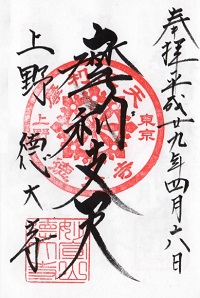 奉拝 平成廿九年四月十八日
摩利支天
上野 徳大寺
東京
上野